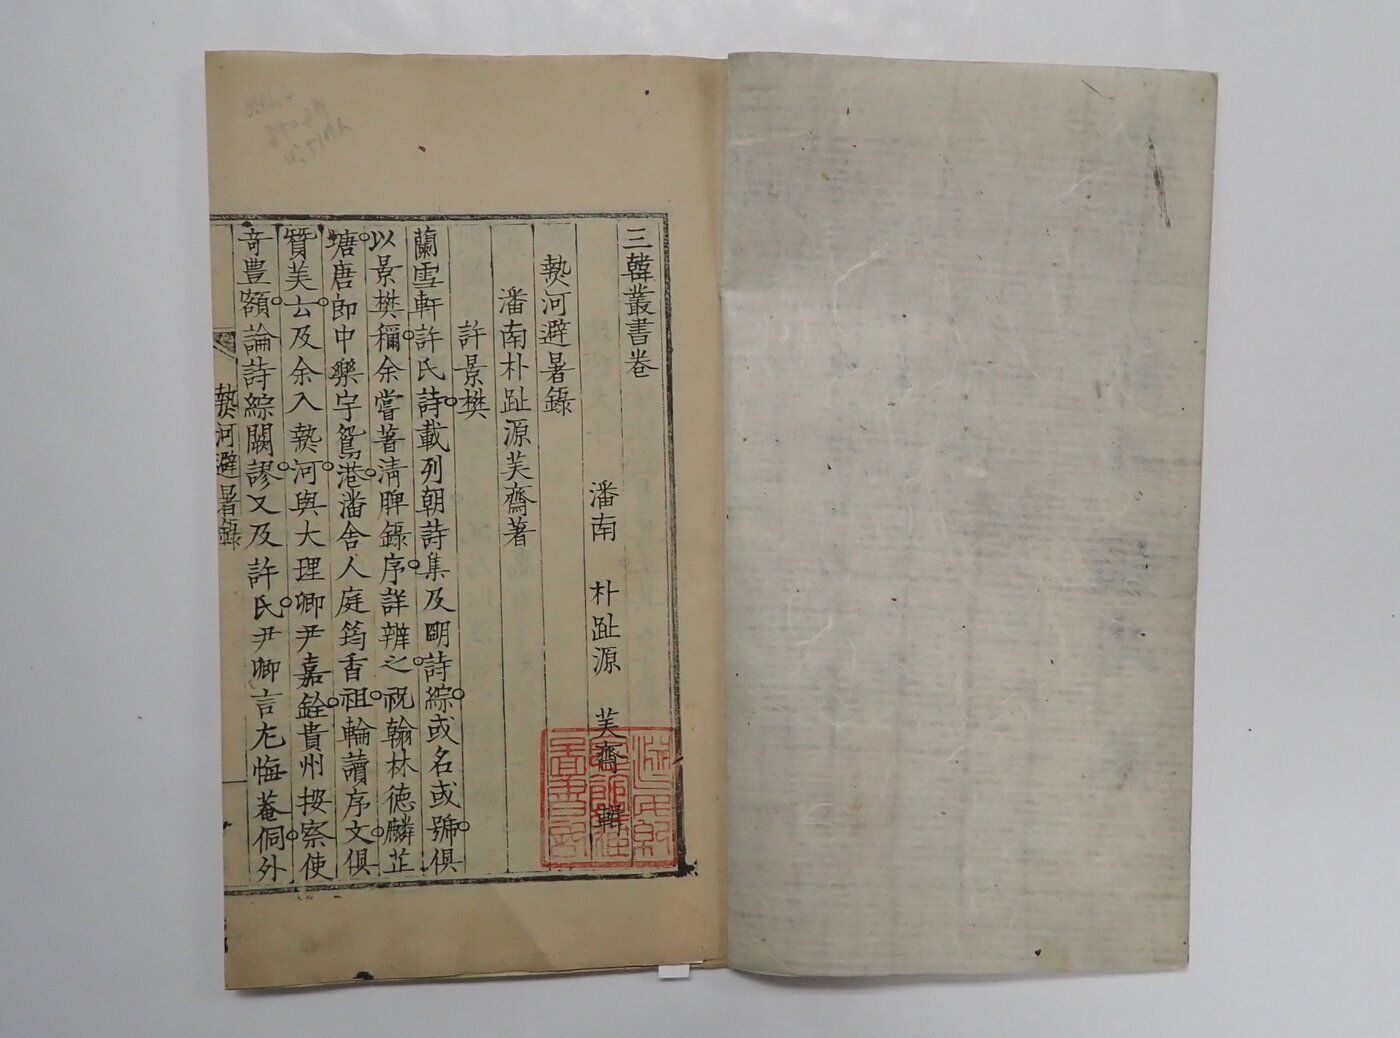 三韓叢書卷
潘南 朴趾源 芙齋 輯
熱河避暑錄
潘南朴趾源芙齋著
許景樊
蘭雪軒許氏詩載列朝詩集及明詩綜或名或號俱
以景樊稱余嘗著淸脾錄序詳辨之祝翰林德麟芷
塘唐郞中樂宇鴛港潘舍人庭筠香祖輪讀序文俱
贊美云及余入熱河與大理卿尹嘉銓貴州按察使
奇豊額論詩綜闕謬又及許氏尹卿言尤悔菴侗外
熱河避暑錄